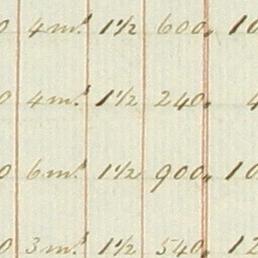 0 4 m.s 1½ 600 " 10
0 4 m.s 1½ 240 " 4
0 6 m.s 1½ 900 " 10
0 3 m.s 1½ 540 " 12